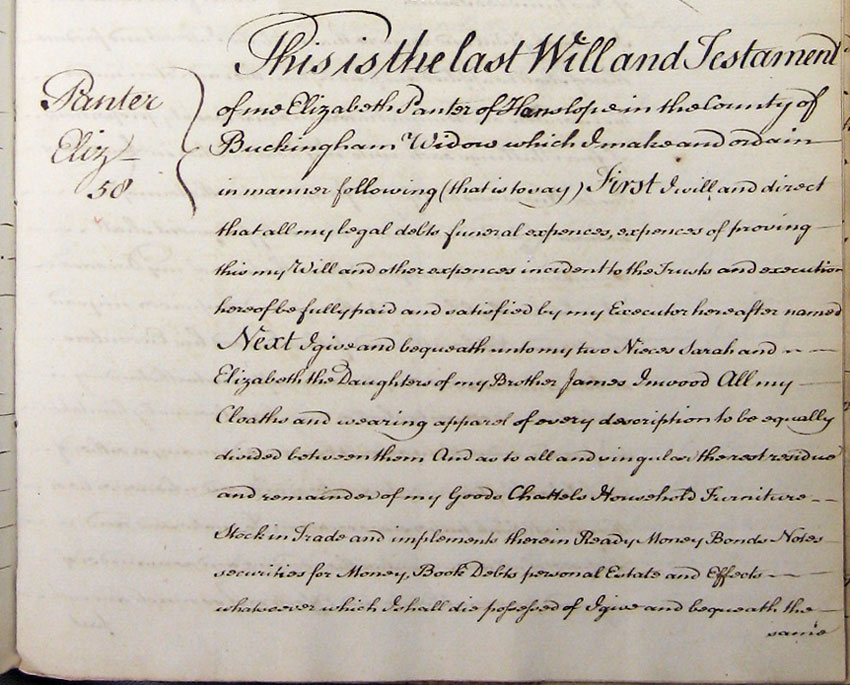 This is the last Will and Testament
Panter
Eliz
58
of me Elizabeth Panter of Hanslope in the County of
Buckingham Widow which I make and ordain
in manner following (that is to say) First I will and direct
that all my legal debts funeral expences, expences of proving
this my Will and other expences incident to the Trusts and execution
hereof be fully paid and satisfied by my Executor hereafter named
Next I give and bequeath unto my two Nieces Sarah and
Elizabeth the Daughters of my Brother James Inwood All my
Cloaths and wearing apparel of every description to be equally
divided between them And as to all and singular the rest residue
and remainder of my Goods Chattels Household Furniture
Stock in Trade and implements therein Ready Money Bonds Notes
securities for Money Book Debts personal Estate and Effects
whatsoever which I shall die possessed of I give and bequeath the
same